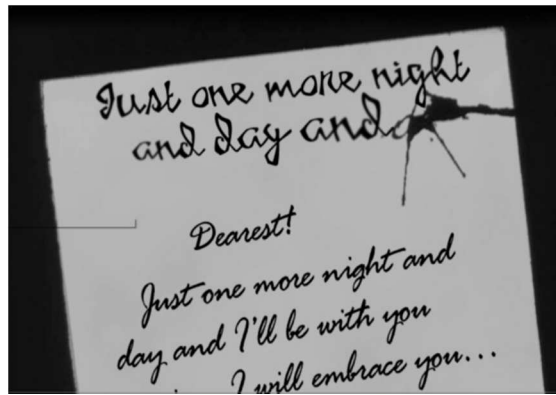 Just one more night
and day and
Dearest!
Just one more night and
day and I'll be with you
I will embrace you...